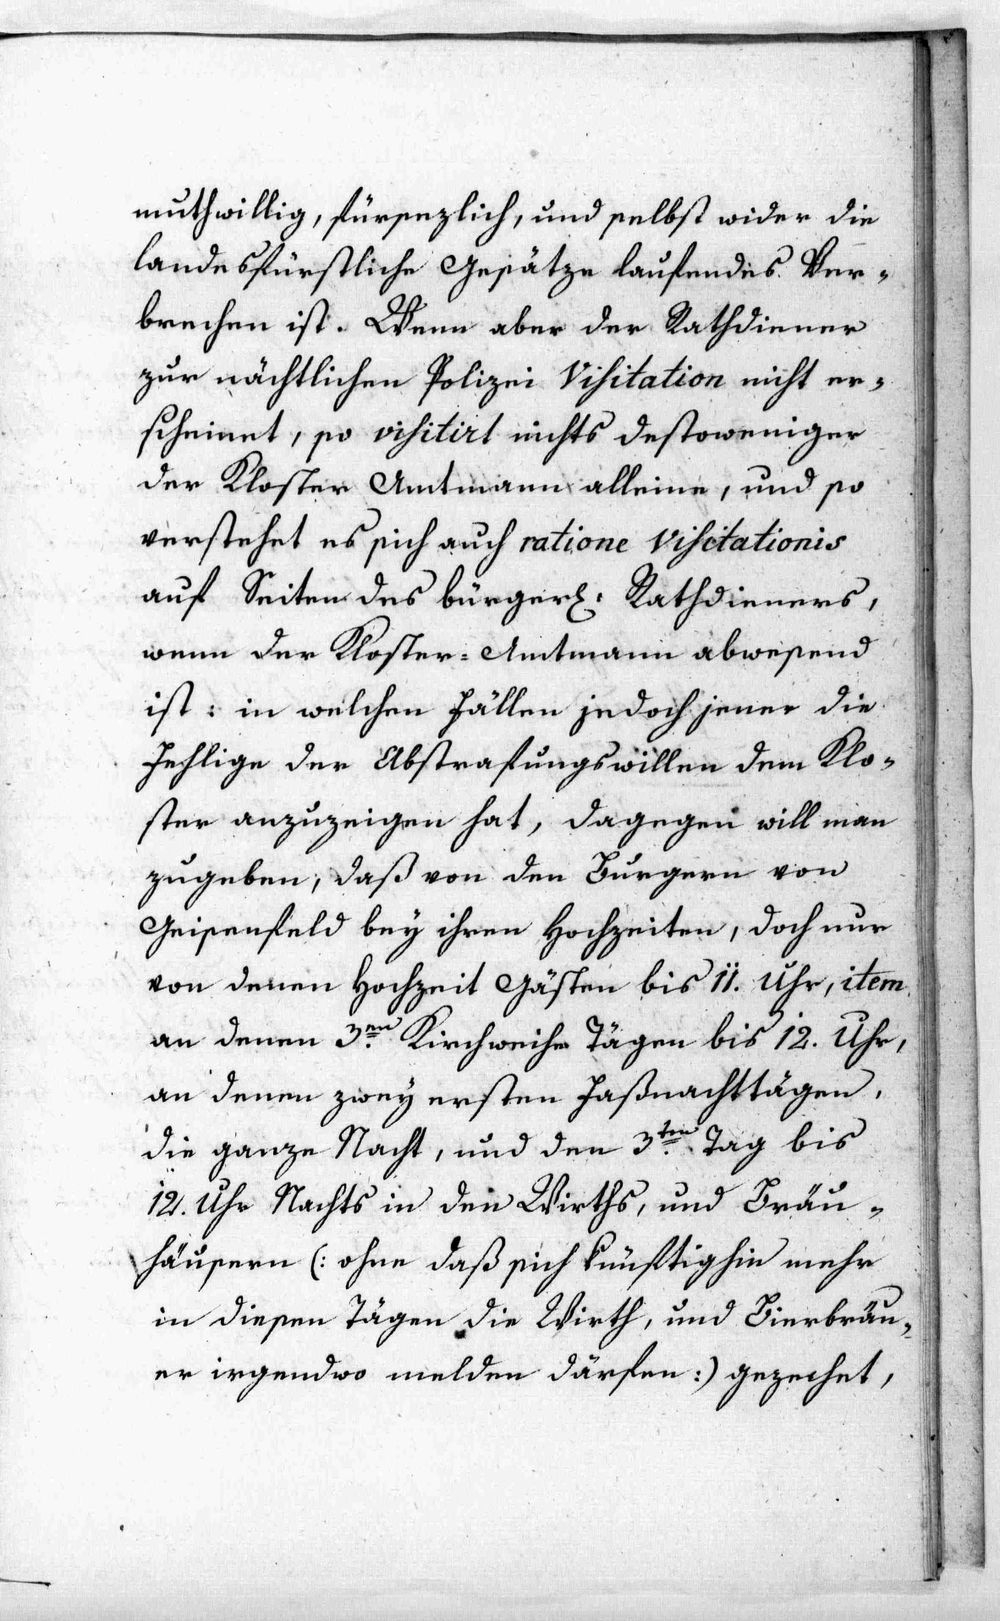 muthwillig, fürsezlich, und selbst wider die
landesfürstliche Gesätze laufendes Ver-
brechen ist. Wenn aber der Rathdiener
zur nächtlichen Polizei Visitation nicht er-
scheinet, so visitirt nichts destoweniger
der Kloster Amtmann alleine, und so
verstehet es sich auch ratione Visitationis
auf Seiten des bürgerl: Rathdieners,
wenn der Kloster-Amtmann abwesend
ist: in welchen Fällen jedoch jener die
Fehlige der Abstrafungswillen dem Klo-
ster anzuzeigen hat, dagegen will man
zugeben, daß von den Burgern von
Geisenfeld bey ihren Hochzeiten, doch nur
von denen Hochzeit Gästen bis 11. Uhr, item
an denen 3en Kirchweihe Tägen bis 12. Uhr,
an denen zwey ersten Faßnachttägen,
die ganze Nacht, und den 3ten Tag bis
12. Uhr Nachts in den Wirths, und Bräu-
häusern (: ohne daß sich künftighin mehr
in diesen Tägen die Wirth, und Bierbräu-
er irgendwo melden därfen :) gezechet,